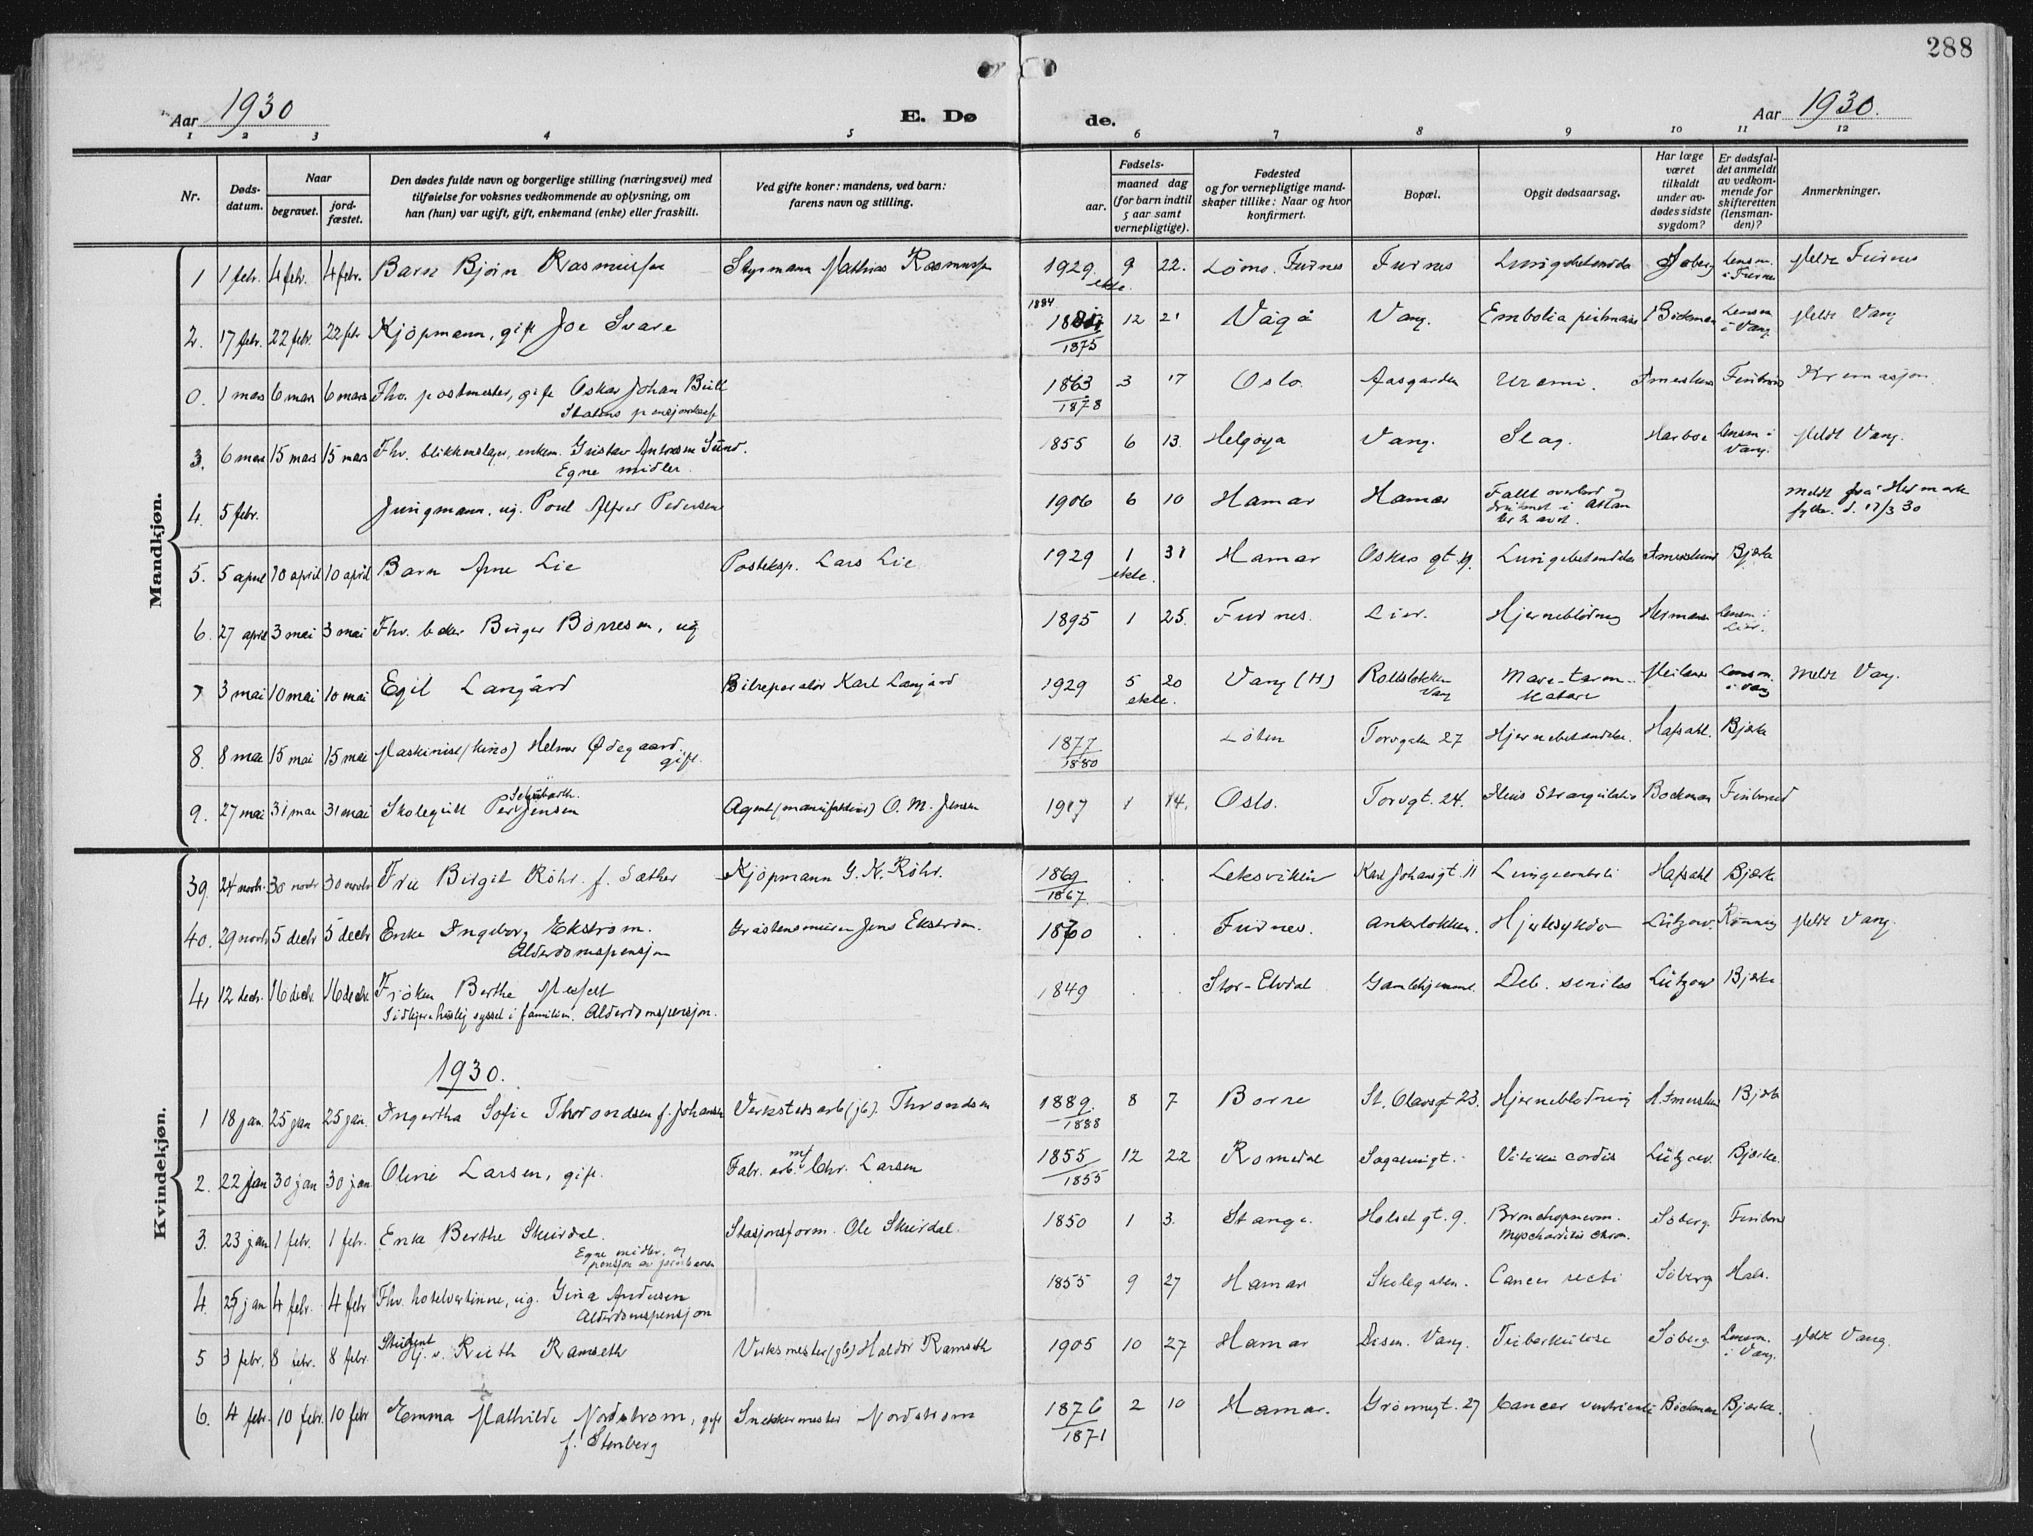 288
Aar 1930
E. Dø
de.
Aar 1930.
1 2 3 4 5 6 7 8 9 10 11 12
Nr.
Døds-
datum.
Naar
begravet.
jord-
fæstet.
Den dødes fulde navn og borgerlige stilling (næringsvei) med
tilføielse for voksnes vedkommende av oplysning, om
han (hun) var ugift, gift, enkemand (enke) eller fraskilt.
Ved gifte koner: mandens, ved barn:
farens navn og stilling.
Fødsels-
aar.
maaned dag
(for barn indtil
5 aar samt
vernepligtige).
Fødested
og for vernepligtige mand-
skaper tillike: Naar og hvor
konfirmert.
Bopæl.
Opgit dødsaarsag.
Har læge
været
tilkaldt
under av-
dødes sidste
sygdom?
Er dødsfal-
det anmeldt
av vedkom-
mende for
skifteretten
(lensman-
den)?
Anmerkninger.
Mandkjøn.
1 1 febr. 4 febr. 4 febr. Barn Bjørn Rasmussen Styrmann Mathias Rasmussen 1929 9 22. Furnes Furnes Søberg Lensm. Meldt Furnes
ekte. i Furnes
1884
2. 17 febr. 22 febr. 22 febr Kjøpmann, gift Joe Svare 12 21 Vågå Vang. Embolia Böckman Lensm Meldt Vang
1875 i Vang
0. 1 mars 6 mars 6 mars Fhv. postmester, gift Oskar Johan Bull 1863 3 17 Oslo Aasgarden Uremi. Kremasjon.
Statens pensjonskasse 1878
3. 6 mars 15 mars 15 mars Fhv. blikkenslager, enkem. Gustav Antonsen Sund. 1855 6 13. Helgøya Vang. Slag. Harboe Lensm i Meldt Vang.
Egne midler. Vang.
4. 5 febr. Jungmann, ug. Poul Alfred Pedersen 1906 6 10 Hamar Hamar Falt overbord og Meldt fra Hedmark
druknet i Atlan fylke. d. 17/3 30
5. 5 april 10 april 10 april Barn Arne Lie Posteksp. Lars Lie 1929 1 31 Hamar Oskars gt. Lungebetendelse Bjerke
ekte.
6. 27 april 3 mai 3 mai Fhv. baker Birger Børresen, ug 1895 1 25. Furnes. Lier. Hjerneblødning Lensm i
Lier.
7 3 mai 10 mai 10 mai Egil Langård Bilreparatør Karl Langård 1929 5 20 Vang (H) Rollsløkken Mave-tarm- Lensm. Meldt Vang.
ekte. Vang katarr i Vang
8. 8 mai 15 mai 15 mai Maskinist (kino) Helmer Ødegaard. 1877 Løten Torvgaten 27 Hjernebetendelse. Hafsahl. Bjerke
gift. 1880
Schübarth.
9. 27 mai 31 mai 31 mai Skolegutt Per Jensen Agent (manufaktur) O. M. Jensen 1917 1 14. Oslo. Torvgt. 24. Ileus Strangulatio Bockman
Kvindekjøn.
39. 24 novbr. 30 novbr 30 novbr Frue Birgit Röhr. f. Sæther Kjøpmann G. K. Röhr. 1869 . . Leksviken Karl Johansgt. 11 Lungeemboli Hafsahl Bjerke
1867.
40. 29 novbr 5 decbr 5 decbr Enke Ingeborg Ekstrøm. Gråstensmurer Jens Ekstrøm. 1860 . . Furnes. Ankerløkken. Hjertesykdom Lützow. Rønning Meldt Vang.
Alderdomspensjon
41 12 decbr. 16 decbr. 16 decbr. Frøken Berthe 1849 . . Stor-Elvdal Gamlehjemmet. Deb. seniles Lützow Bjerke
Tidligere huslig syssel i familien. Alderdomspensjon.
1930.
1 18 jan. 25 jan 25 jan. Ingertha Sofie Throndsen f. Johansen Verkstedsarb (jb). Throndsen 1889. 8 7 Borre St. Olavsgt 23. Hjerneblødning Bjerke
1888
2. 22 jan 30 jan 30 jan. Olivie Larsen, gift. Fabr. arb. Chr. Larsen 1855 12 22 Romedal Vitium cordis Lützow. Bjerke.
1855
3. 23 jan 1 febr. 1 febr. Enke Berthe Skurdal. Stasjonsform. Ole Skurdal. 1850 1 3. Stange. Holset gt. 9. Bronchopneum. Søberg.
Egne midler og Myocharditis chron.
pensjon av jernbanen
4. 25 jan 4 febr. 4 febr Fhv. hotelvertinne, ug. Gina Andersen 1855 9 27 Hamar Skolegaten. Cancer recti Søberg
Alderdomspensjon
5 3 febr. 8 febr. 8 febr. Student Ruth Ramseth Verksmester (jb) Haldor Ramseth 1905 10 27 Hamar Disen. Vang. Tuberkulose Søberg Lensm. Meldt Vang.
i Vang.
6. 4 febr. 10 febr. 10 febr Emma Mathilde Nordstrøm, gift Snekkermester Nordstrøm 1876 2 10 Hamar. Grønnegt. 27 Cancer ventriculi Böckman Bjerke.
f. Stenberg 1871